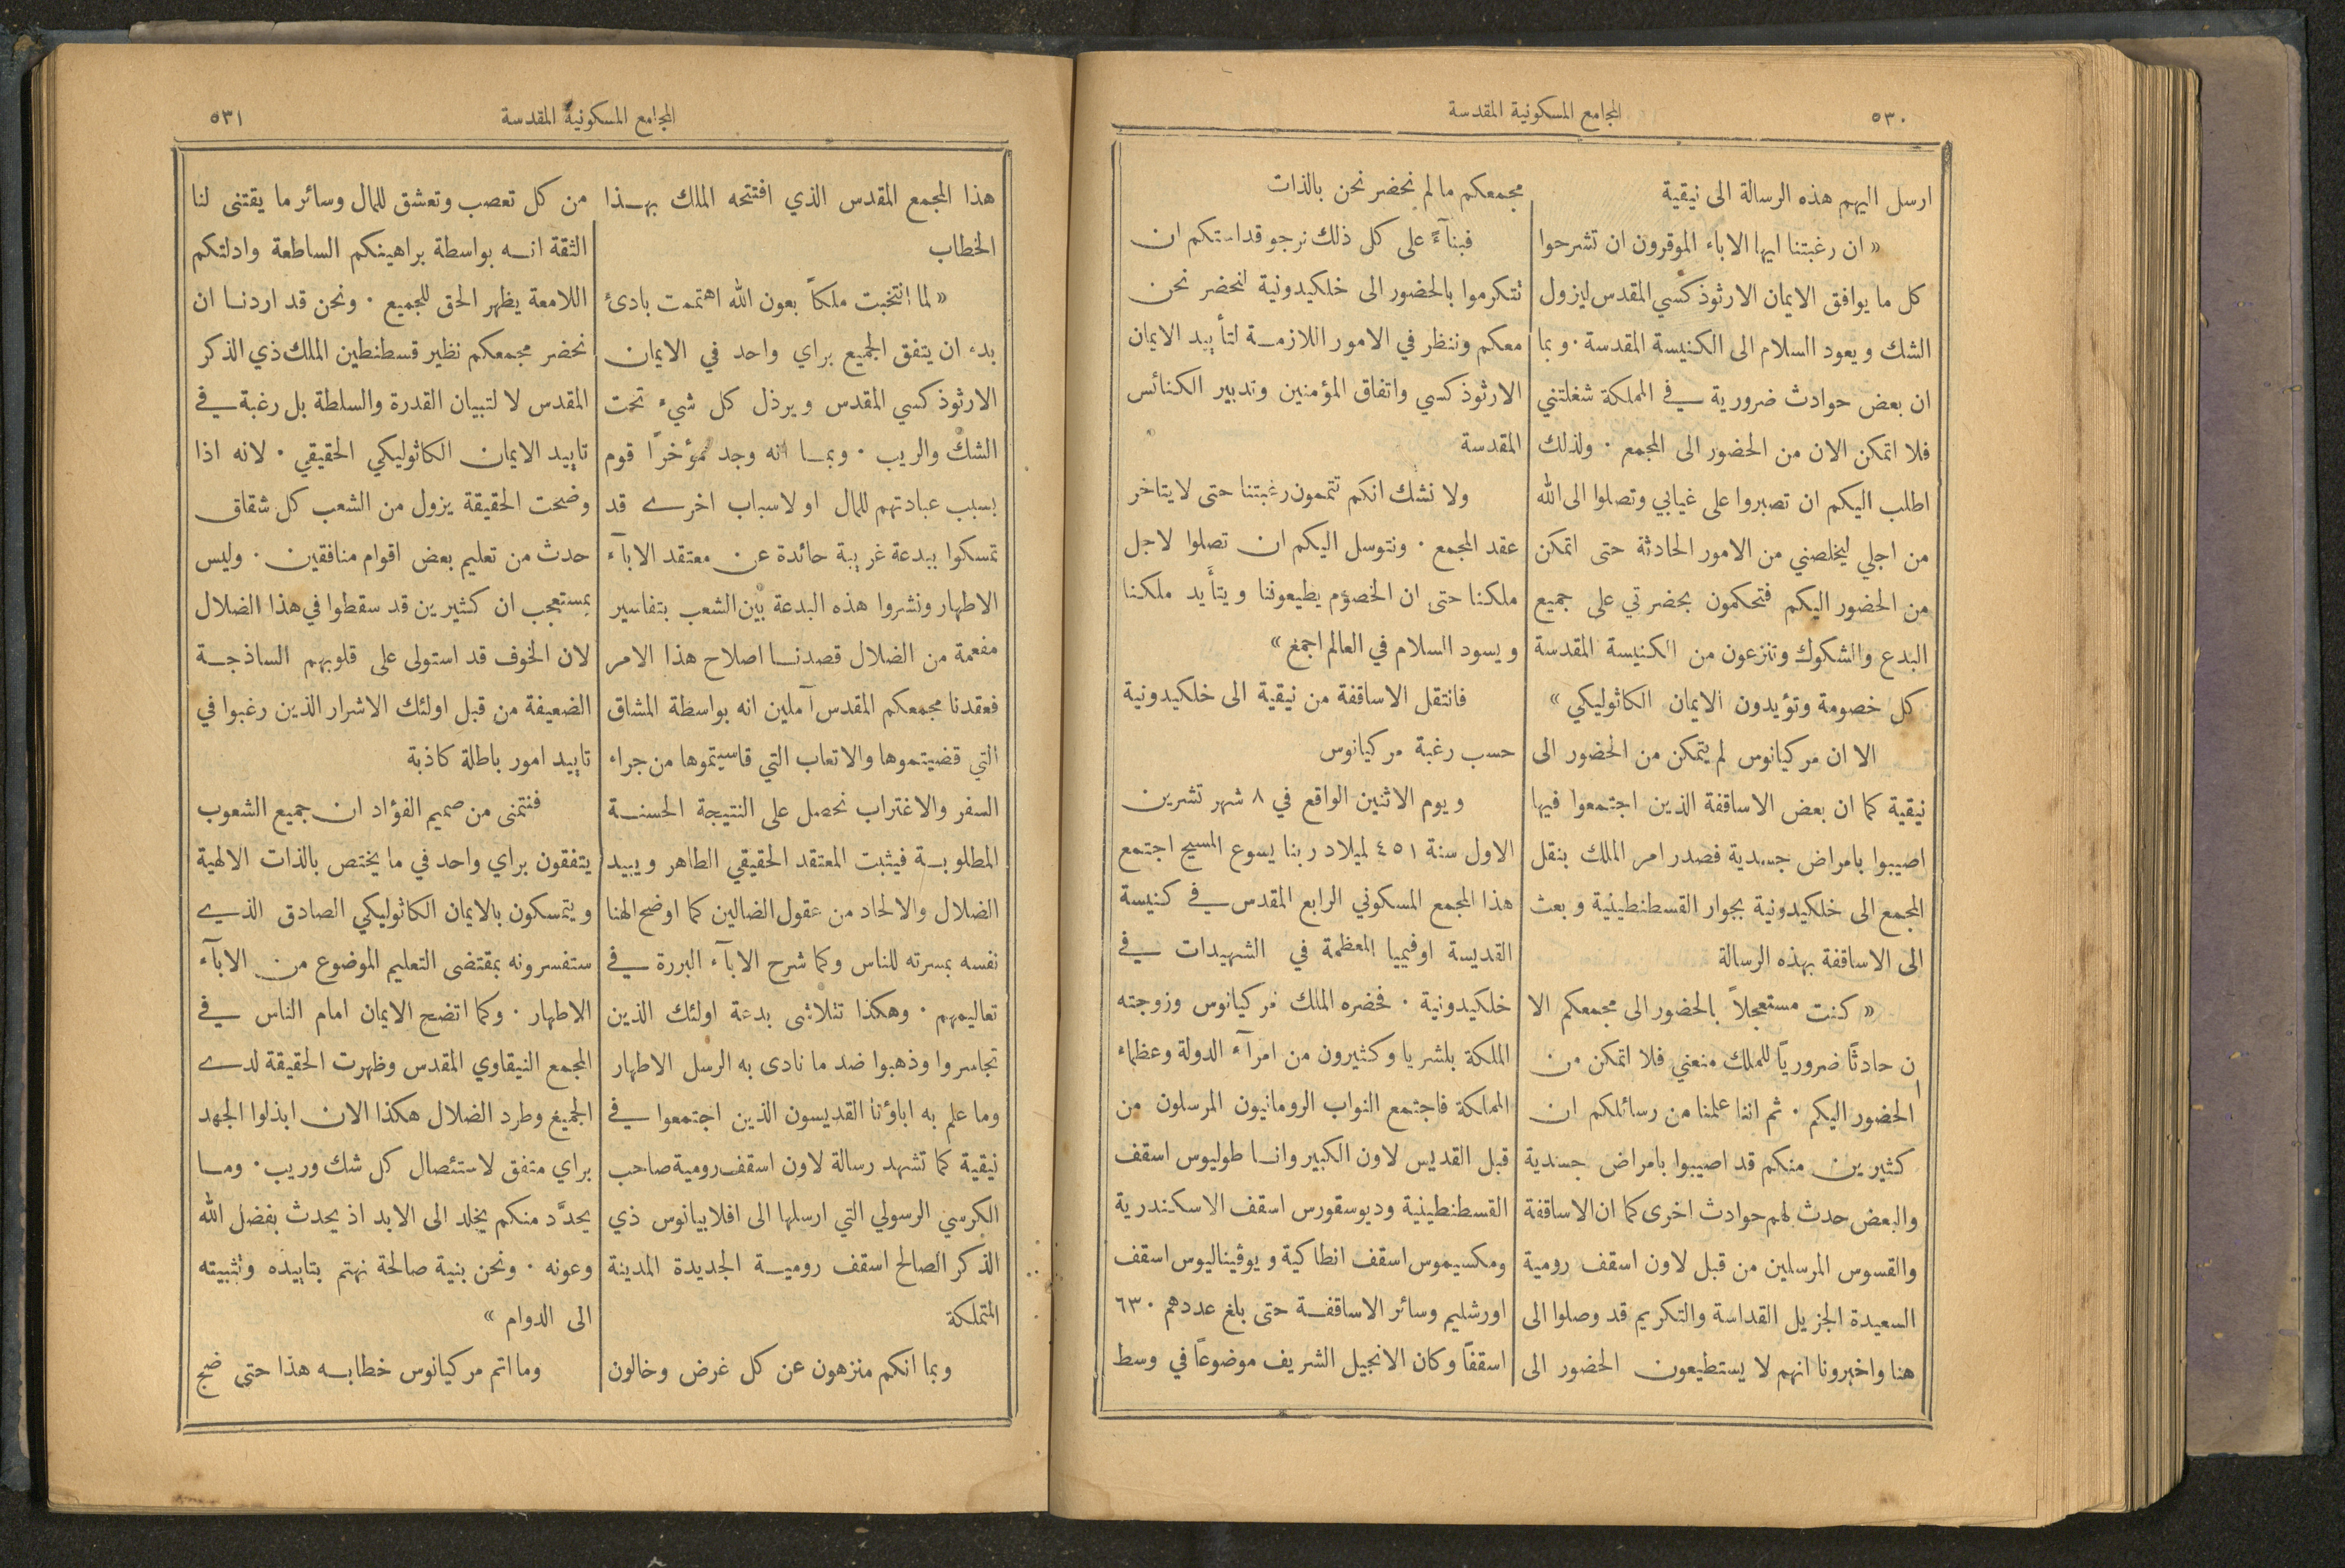 ٥٣٠
المجامع المسكونية المقدسة
ارسل اليهم هذه الرسالة الى نيقية
« ان رغبتنا ايها الاباء الموقرون ان تشرحوا
كل ما يوافق الايمان الارثوذكسي المقدس ليزول
الشك ويعود السلام الى الكنيسة المقدسة . وبما
ان بعض حوادث ضرورية في المملكة شغلتني
فلا اتمكن الان من الحضور الى المجمع . ولذلك
اطلب اليكم ان تصبروا على غيابي وتصلوا الى الله
من اجلي ليخلصني من الامور الحادثة حتى اتمكن
من الحضور اليكم فتحكمون بحضرتي على جميع
البدع والشكوك وتنزعون من الكنيسة المقدسة
كل خصومة وتؤيدون الايمان الكاثوليكي »
الا ان مركيانوس لم يتمكن من الحضور الى
نيقية كما ان بعض الاساقفة الذين اجتمعوا فيها
اصيبوا بامراض جسدية فصدر امر الملك بنقل
المجمع الى خلكيدونية بجوار القسطنطينية وبعث
الى الاساقفة بهذه الرسالة
« كنت مستعجلاً بالحضور الى مجمعكم الا
ان حادثًا ضروريًا للملك منعني فلا اتمكن من
الحضور اليكم . ثم اننا علمنا من رسائلكم ان
كثيرين منكم قد اصيبوا بامراض جسدية
والبعض حدث لهم حوادث اخرى كما ان الاساقفة
والقسوس المرسلين من قبل لاون اسقف رومية
السعيدة الجزيل القداسة والتكريم قد وصلوا الى
هنا واخبرونا انهم لا يستطيعون الحضور الى
مجمعكم ما لم نحضر نحن بالذات
فبنآءً على كل ذلك نرجو قداستكم ان
تتكرموا بالحضور الى خلكيدونية لنحضر نحن
معكم وننظر في الامور اللازمة لتأييد الايمان
الارثوذكسي واتفاق المؤمنين وتدبير الكنائس
المقدسة
ولا نشك انكم تتممون رغبتنا حتى لا يتاخر
عقد المجمع . ونتوسل اليكم ان تصلوا لاجل
ملكنا حتى ان الخصوم يطيعوننا ويتأيد ملكنا
ويسود السلام في العالم اجمع »
فانتقل الاساقفة من نيقية الى خلكيدونية
حسب رغبة مركيانوس
ويوم الاثنين الواقع في ٨ شهر تشرين
الاول سنة ٤٥١ لميلاد ربنا يسوع المسيح اجتمع
هذا المجمع المسكوني الرابع المقدس في كنيسة
القديسة اوفيميا المعظمة في الشهيدات في
خلكيدونية . فحضره الملك مركيانوس وزوجته
الملكة بلشريا وكثيرون من امرآء الدولة وعظماء
المملكة فاجتمع النواب الرومانيون المرسلون من
قبل القديس لاون الكبير وانا طوليوس اسقف
القسطنطينية وديوسقورس اسقف الاسكندرية
ومكسيموس اسقف انطاكية ويوڤيناليوس اسقف
اورشليم وسائر الاساقفة حتى بلغ عددهم ٦٣٠
اسقفاً وكان الانجيل الشريف موضوعاً في وسط
المجامع المسكونية المقدسة
٥٣١
هذا المجمع المقدس الذي افتتحه الملك بهذا
الخطاب
« لما انتخبت ملكاً بعون الله اهتممت بادئ
بدء ان يتفق الجميع براي واحد في الايمان
الارثوذكسي المقدس ويرذل كل شيء تحت
الشك والريب . وبما انه وجد مؤخراً قوم
بسبب عبادتهم للمال او لاسباب اخرى قد
تمسكوا ببدعة غريبة حائدة عن معتقد الابآء
الاطهار ونشروا هذه البدعة بين الشعب بتفاسير
مفعمة من الضلال قصدنا اصلاح هذا الامر
فعقدنا مجمعكم المقدس آملين انه بواسطة المشاق
التي قضيتموها والاتعاب التي قاسيتموها من جراء
السفر والاغتراب نحصل على النتيجة الحسنة
المطلوبة فيثبت المعتقد الحقيقي الطاهر ويبيد
الضلال والالحاد من عقول الضالين كما اوضح الهنا
نفسه بمسرته للناس وكما شرح الابآء البررة في
تعاليمهم . وهكذا تتلاشى بدعة اولئك الذين
تجاسروا وذهبوا ضد ما نادى به الرسل الاطهار
وما علم به اباؤنا القديسون الذين اجتمعوا في
نيقية كما تشهد رسالة لاون اسقف رومية صاحب
الكرسي الرسولي التي ارسلها الى افلابيانوس ذي
الذكر الصالح اسقف رومية الجديدة المدينة
المتملكة
وبما انكم منزهون عن كل غرض وخالون
من كل تعصب وتعشق للمال وسائر ما يقتنى لنا
الثقة انه بواسطة براهينكم الساطعة وادلتكم
اللامعة يظهر الحق للجميع . ونحن قد اردنا ان
نحضر مجمعكم نظير قسطنطين الملك ذي الذكر
المقدس لا لتبيان القدرة والسلطة بل رغبة في
تاييد الايمان الكاثوليكي الحقيقي . لانه اذا
وضحت الحقيقة يزول من الشعب كل شقاق
حدث من تعليم بعض اقوام منافقين . وليس
بمستعجب ان كثيرين قد سقطوا في هذا الضلال
لان الخوف قد استولى على قلوبهم الساذجة
الضعيفة من قبل اولئك الاشرار الذين رغبوا في
تاييد امور باطلة كاذبة
فنتمنى من صميم الفؤاد ان جميع الشعوب
يتفقون براي واحد في ما يختص بالذات الالهية
ويتمسكون بالايمان الكاثوليكي الصادق الذي
ستفسرونه بمقتضى التعليم الموضوع من الابآء
الاطهار . وكما اتضح الايمان امام الناس في
المجمع النيقاوي المقدس وظهرت الحقيقة لدى
الجميع وطرد الضلال هكذا الان ابذلوا الجهد
براي متفق لاستئصال كل شك وريب . وما
يحدَّد منكم يخلد الى الابد اذ يحدث بفضل الله
وعونه . ونحن بنية صالحة نهتم بتاييده وتثبيته
الى الدوام »
وما اتم مركيانوس خطابه هذا حتى ضج